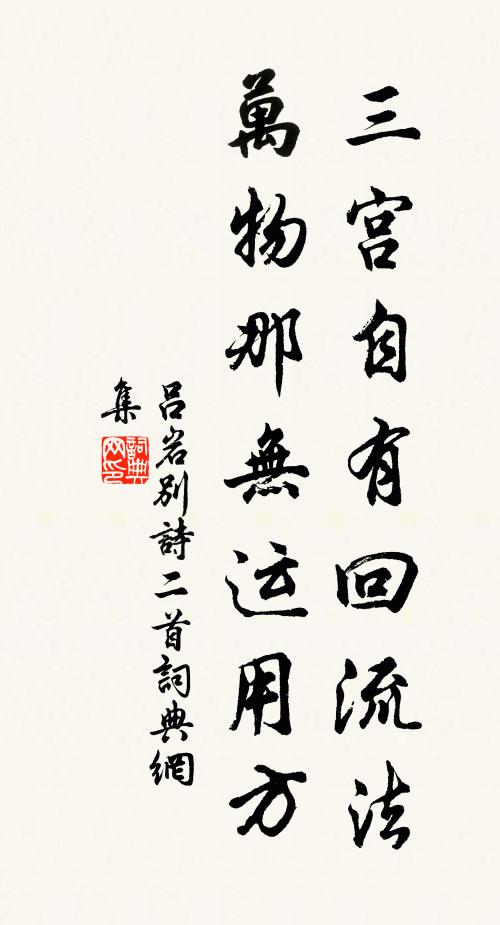 三宫自有回流法
萬物那無运用方
吕岩别詩二首詞典網
集
詞典
网印